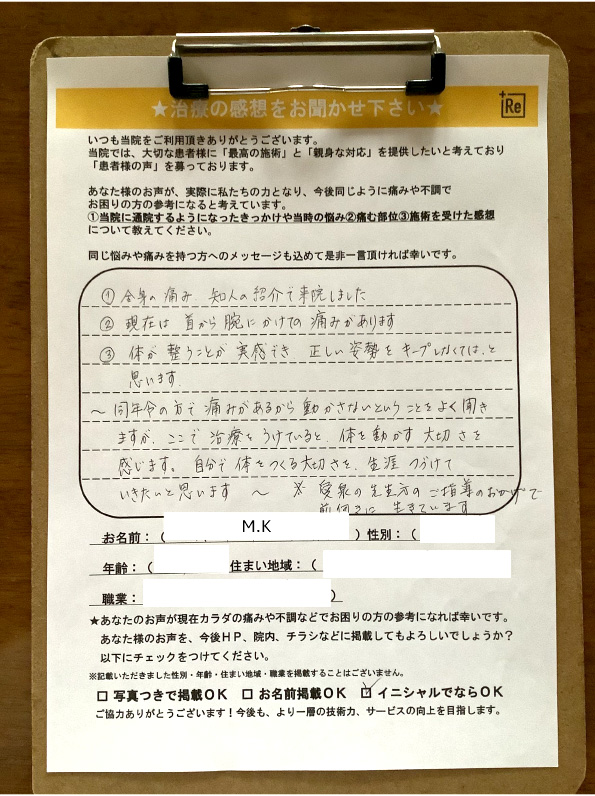 ★治療の感想をお聞かせ下さい★
+Re
いつも当院をご利用頂きありがとうございます。
当院では、大切な患者様に「最高の施術」と「親身な対応」を提供したいと考えており
「患者様の声」を募っております。
あなた様のお声が、実際に私たちの力となり、今後同じように痛みや不調で
お困りの方の参考になると考えています。
①当院に通院するようになったきっかけや当時の悩み②痛む部位③施術を受けた感想
について教えてください。
同じ悩みや痛みを持つ方へのメッセージも込めて是非一言頂ければ幸いです。
① 全身の痛み 知人の紹介で来院しました
② 現在は 首から腕にかけての痛みがあります
③ 体が整うことが実感でき 正しい姿勢をキープしなくては、と
思います.
～ 同年令の方で痛みがあるから動かさないということをよく聞き
ますが、ここで治療をうけていると、体を動かす大切さを
感じます。自分で体をつくる大切さを、生涯つづけて
いきたいと思います ～ ※ の先生方のご指導のおかげで
前向きに生きています
お名前：（ M.K ）性別：（
年齢：（ 住まい地域：（
職業： ）
★あなたのお声が現在カラダの痛みや不調などでお困りの方の参考になれば幸いです。
あなた様のお声を、今後ＨＰ、院内、チラシなどに掲載してもよろしいでしょうか？
以下にチェックをつけてください。
※記載いただきました性別・年齢・住まい地域・職業を掲載することはございません。
□ 写真つきで掲載ＯＫ □ お名前掲載ＯＫ ☑ イニシャルでならＯＫ
ご協力ありがとうございます！今後も、より一層の技術力、サービスの向上を目指します。